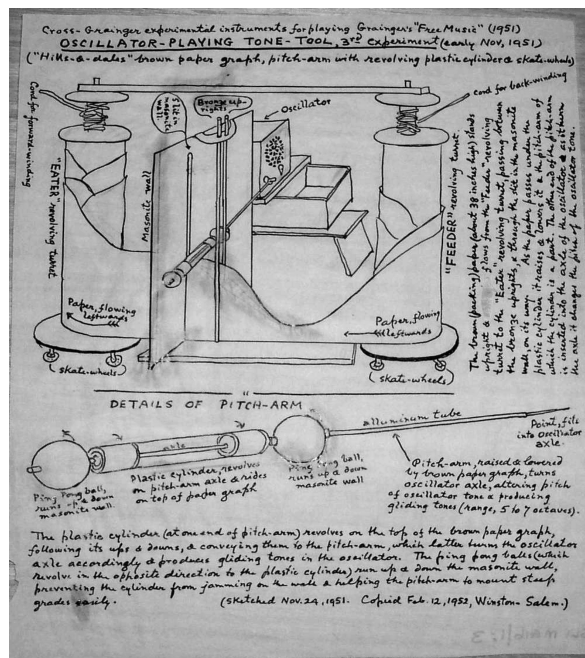 Cross-Grainger experimental instruments for playing Grainger's "Free Music" (1951)
OSCILLATOR-PLAYING TONE-TOOL, 3rd experiment (early Nov, 1951)
("Hills-&-dales" brown paper graph, pitch-arm with revolving plastic cylinder & skate-wheels)
Cord for forward-winding
"EATER" revolving turret
Masonite wall
Slit in masonite wall
Bronze up-rights
Oscillator
cord for back-winding
"FEEDER" revolving turret
Paper, flowing
leftwards
Paper, flowing
leftwards
(skate-wheels)
(skate-wheels)
The brown (packing) paper (about 38 inches high) stands
upright & flows from the "Feeder" revolving
turret to the "Eater" revolving turret, passing between
the bronze uprights, & through the slit in the masonite
wall, on its way. As the paper passes under the
plastic cylinder it raises & lowers it & the pitch-arm of
which the cylinder is a part. The other end of the pitch-arm
is inserted into the axle of the oscillator & as it turns
the axle it changes the pitch of the oscillator tone.
DETAILS OF PITCH-ARM
Ping Pong ball,
runs up & down
masonite wall.
axle
Plastic cylinder, revolves
on pitch-arm axle & rides
on top of paper graph
Ping Pong ball,
runs up & down
masonite wall
aluminum tube
Point, fits
into Oscillator
axle.
Pitch-arm, raised & lowered
by brown paper graph, turns
oscillator axle, altering pitch
of oscillator tone & producing
gliding tones (range, 5 to 7 octaves).
The plastic cylinder (at one end of pitch-arm) revolves on the top of the brown paper graph,
following its ups & downs, & conveying them to the pitch-arm, which latter turns the oscillator
axle accordingly & produces gliding tones in the oscillator. The ping pong balls (which
revolve in the opposite direction to the plastic cylinder) run up & down the masonite wall,
preventing the cylinder from jamming on the wall & helping the pitch-arm to mount steep
grades easily. (Sketched Nov. 24, 1951. Copied Feb. 12, 1952, Winston-Salem.)